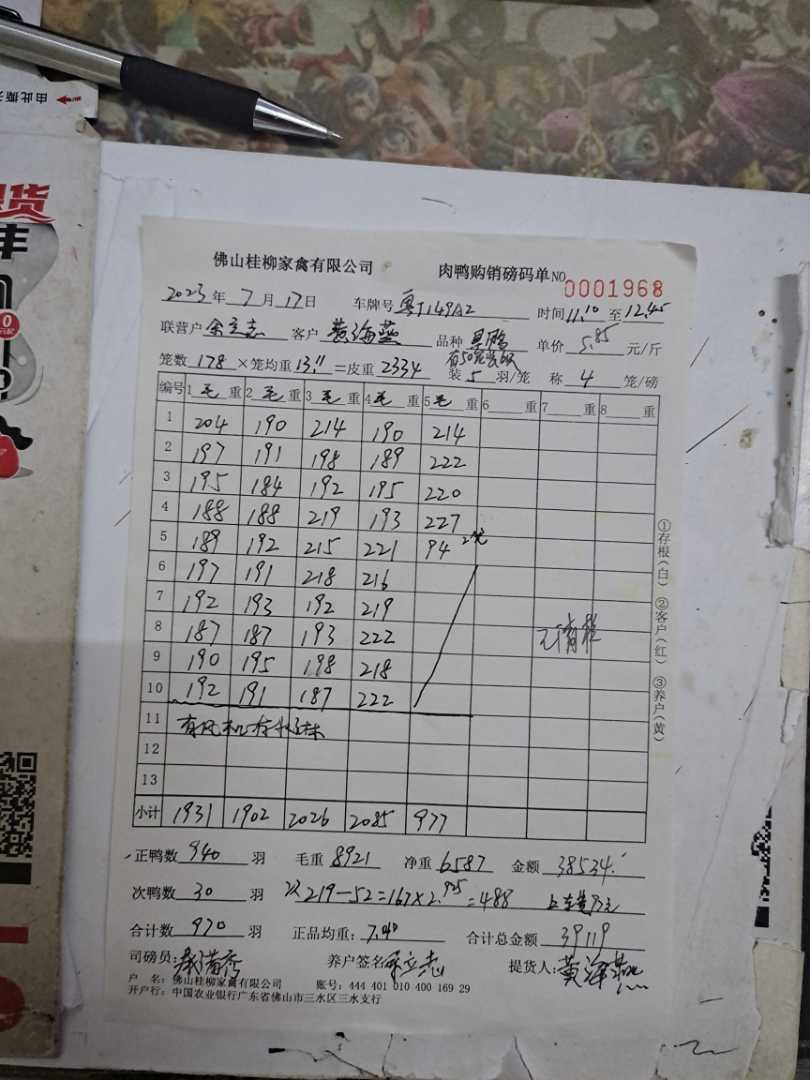 由此撕
货
丰
佛山桂柳家禽有限公司 肉鸭购销磅码单 NO 0001968
2023年7月17日 车牌号粤J149A2 时间11.10至12.45
联营户余立志 客户黄海燕 品种 单价5.85元/斤
笼数178×笼均重13.11=皮重2334 装5羽/笼 称4笼/磅
编号 1毛重 2毛重 3毛重 4毛重 5毛重 6重 7重 8重
1 204 190 214 190 214
2 197 191 198 189 222
3 195 184 192 195 220
4 188 188 219 193 227
5 189 192 215 221 94 2笼
6 197 191 218 216
7 192 193 192 219
8 187 187 193 222
9 190 195 198 218
10 192 191 187 222
11 有风机
12
13
小计 1931 1902 2026 2085 977
①存根(白) ②客户(红) ③养户(黄)
正鸭数940羽 毛重8921 净重6587 金额38534.
次鸭数30羽 219-52=167×2.925=488
合计数970羽 正品均重:7.00 合计总金额39119
司磅员: 养户签名余立志 提货人:黄海燕
户 名:佛山桂柳家禽有限公司 账号:444 401 010 400 169 29
开户行:中国农业银行广东省佛山市三水区三水支行